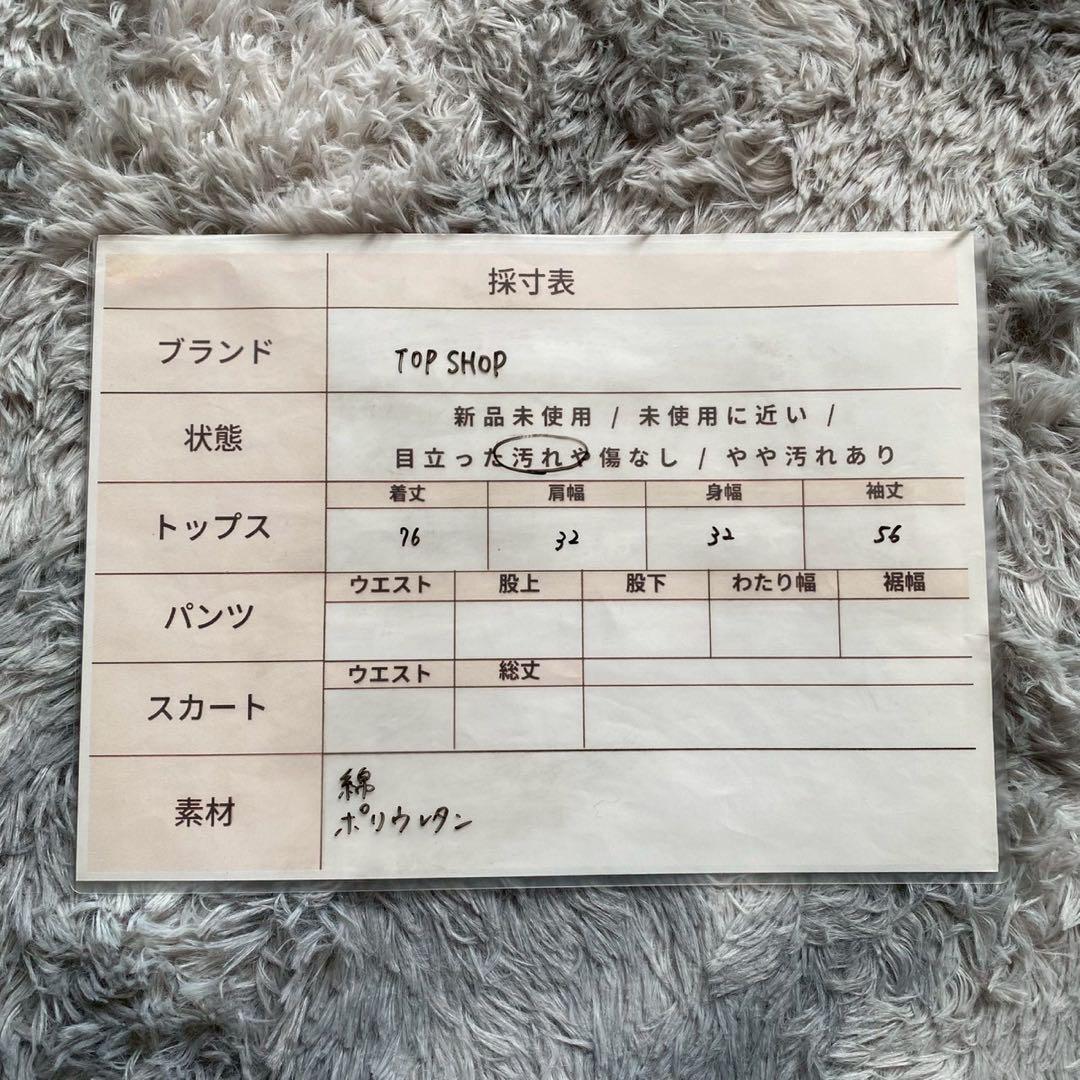 採寸表
ブランド
TOP SHOP
状態
新品未使用 / 未使用に近い /
目立った汚れや傷なし / やや汚れあり
トップス
着丈 肩幅 身幅 袖丈
76 32 32 56
パンツ
ウエスト 股上 股下 わたり幅 裾幅
スカート
ウエスト 総丈
素材
綿
ポリウレタン